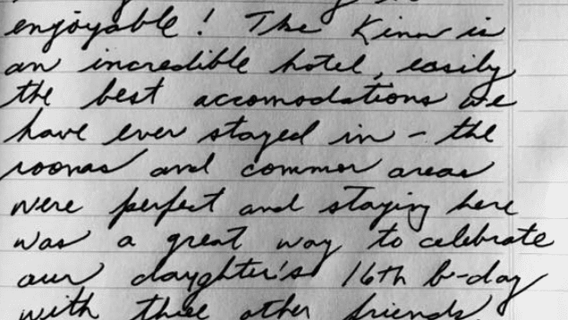 enjoyable! The Kinn is
an incredible hotel, easily
the best accomodations we
have ever stayed in - the
rooms and common areas
were perfect and staying here
was a great way to celebrate
our daughter's 16th b-day
with three other friends